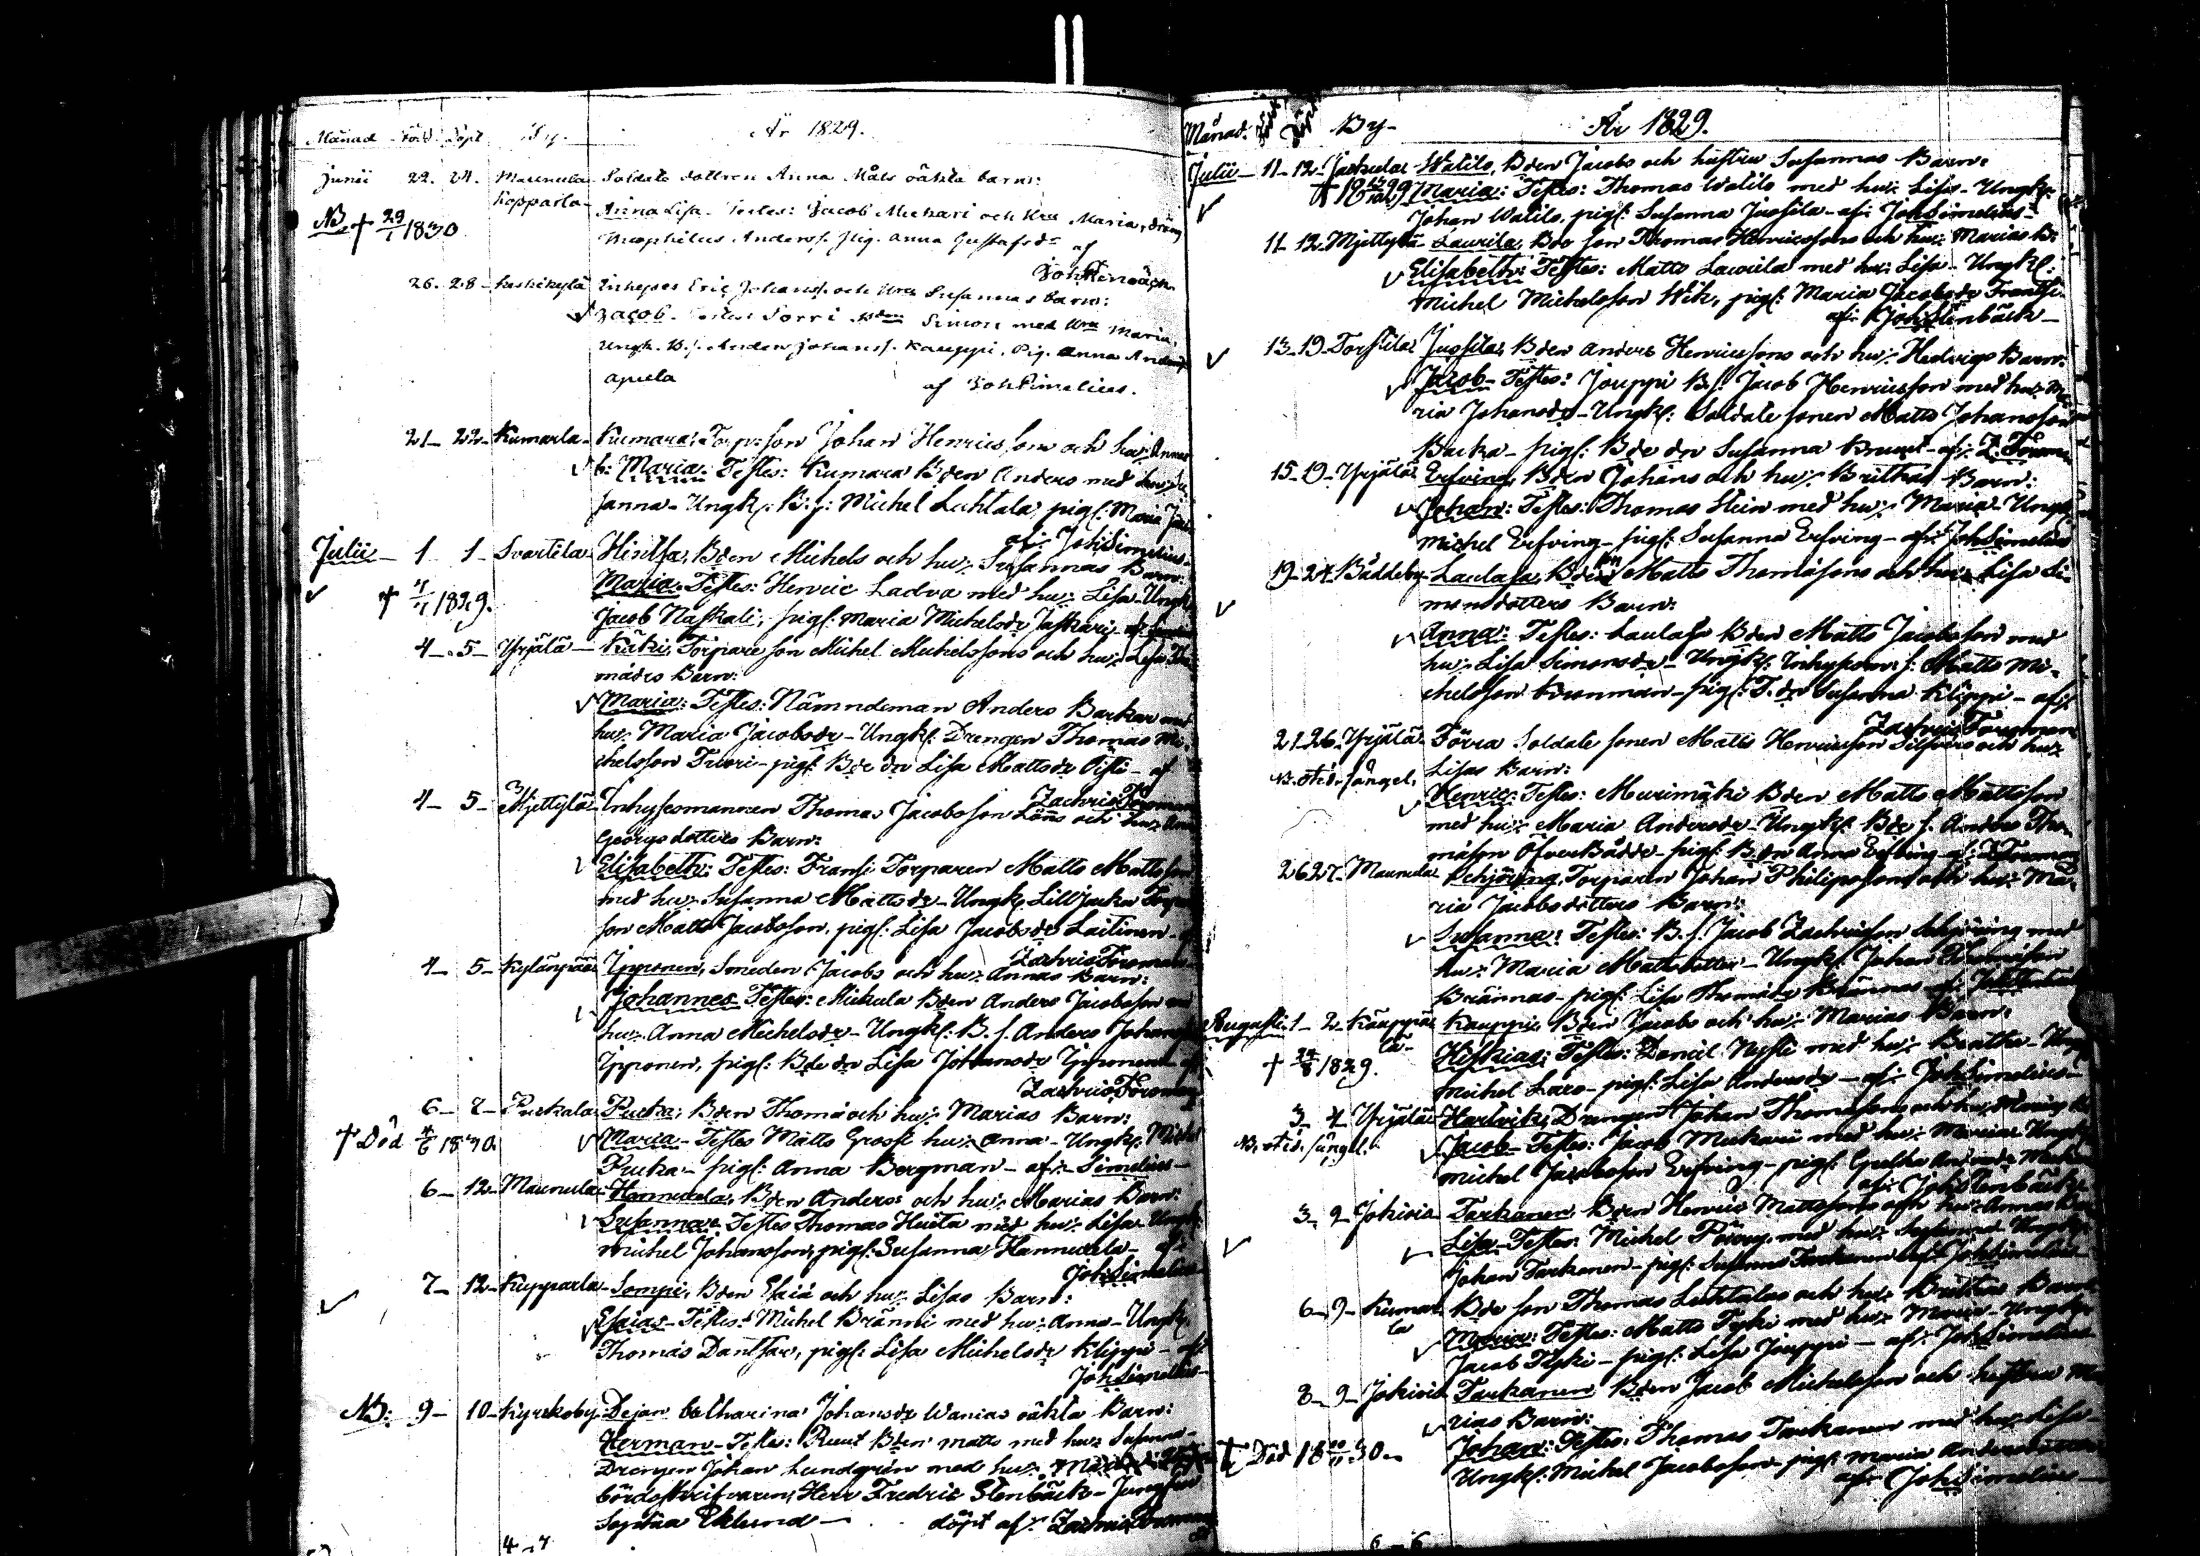 Månad Föd. Döpt By. År 1829.
Junii 22. 24. Maunula Soldats dottren Anna Måls oäkta barn:
Kopparla
Anna Lisa. Testes: Jacob Muckari och Hru Maria, dräng
NB. † 29/1 1830
Theophilus Anderss. Pig. Anna Gustafsdr af
Joh Stenbäck.
26. 28 Keskikylä Inhyses Eric Johanss. och Hru Susannas barn:
Jacob. Testes Sorri Bden Simon med Hru Maria,
Ungk. B.s. Anders Johanss. Kauppi, Pig. Anna Andersd
apuela af Joh Simelius.
21- 22- Kumarla- Kumara, Torp. son Johan Henricssons och hu: Annas
b: Maria. Testes: Kumara Bden Anders med hu: Su
sanna- Ungk: B.s: Michel Luhtala, pigs: Maria
af: Joh Simelius
Julii- 1- 1- Svartila Hintsa, Bden Michels och hu: Susannas Barn:
† 1829.
Maria. Testes: Henric Ladva med hu: Lisa. Ungk:
Jacob Naskali, pigs: Maria Michelsdr Jaskari
4- 5- Yrjälä- Käki, Torpare son Michel Michelssons och hu: Lisa Tho
mædrs Barn:
Maria: Testes: Nämndeman Anders Barkar med
hu: Maria Jacobsdr- Ungks: Drengen Thomas Mi
chelsson Tuori- pigs: Bde dr Lisa Mattsdr Pisti- af
Zachris Forsman
4- 5- Mjettylä- Inhysesmannen Thomas Jacobsson Löns och hu: Anna
Georgsdotters Barn:
Elisabeth: Testes: Fransi Torparen Matts Mattsson
med hu: Susanna Mattsdr- Ungks Lilljacka Torpar
son Matts Jacobsson, pigs: Lisa Jacobsdr Laitinen- af
Zachris Forsman
4- 5- Kylänpää Ypponen, Smeden Jacobs och hu: Annas Barn:
Johannes Testes: Mickula Bden Anders Jacobsson med
hu: Anna Michelsdr- Ungks: B.s. Anders Johans
Ypponen, pigs: Bde dr Lisa Johansdr Ypponen- af
Zachris Forsman
6- 7- Puckala Pucka, Bden Thomæ och hu: Marias Barn:
† Död 1830.
Maria- Testes Matts Grosse hu: Anna- Ungks: Michel
Pucka- pigs: Anna Bergman- af: Simelius-
6- 12- Maunula- Hannuula, Bden Anders och hu: Marias Barn:
Susanna Testes Thomas Huita med hu: Lisa- Ungk
Michel Johansson, pigs: Susanna Hannuula- af:
Joh Simelius
7- 12- Kupparla- Sompi, Bden Esaiæ och hu: Lisas Barn:
Esaias- Testes: Michel Bränni med hu: Anna- Ungks.
Thomas Dantsar, pigs: Lisa Michelsdr Klippi- af
Joh Simelius-
NB: 9- 10- Kyrckoby Dejan Catharina Johansdr Wanias oäkta Barn:
Herman- Testes: Ruut Bden Matts med hu: Susanna-
Drengen Johan Lundgrén med hu:
häradsskrifvaren, Herr Fredric Stenbäck- Jungfru
Sophia Eklund- döpt af: Zachris Forsman
4 7
Månad. Född Döpt By- År 1829.
Julii- 11- 12- Jackula- Walilo, Bden Jacobs och hustru Susannas Barn:
Maria: Testes: Thomas Walilo med hu: Lisa- Ungks:
Johan Walilo, pigs: Susanna Jussila- af: Joh Simelius-
11- 12- Mjettylä- Laurila, Bde son Thomas Henricssons och hu: Marias B:
Elisabeth: Testes: Matts Laurila med hu: Lisa- Ungks:
Michel Michelsson Wik, pigs: Maria Jacobsdr Frantsi-
af: Joh Stenbäck-
13- 19- Torstila Jussila, Bden Anders Henricssons och hu: Hedvigs Barn:
Jacob- Testes: Jouppi Bs: Jacob Henricsson med hu: Ma
ria Johansdr- Ungks: Soldate sonen Matts Johansson
Backa- pigs: Bde dr Susanna Bruut- af: Z. Forsman
15- 19- Yrjälä Erfving, Bden Johans och hu: Brittas Barn:
Johan: Testes: Thomas Stein med hu: Maria- Ungk
Michel Erfving- pigs: Susanna Erfving- af: Joh Simelius
19- 24. Båddeby- Laulaja, Bden Matts Thomassons och hu: Lisa Si-
monsdotters Barn:
Anna: Testes: Laulaja Bden Matts Jacobsson med
hu: Lisa Simonsdr- Ungks: Inhysesm. s: Matts Mi-
chelsson Kronman- pigs: T. dr Susanna Klippi- af:
Zachris Forsman
21. 26. Yrjälä- Förra Soldate sonen Matts Henricsson Silfvers och hu:
Lisas Barn:
Henric: Testes: Murimäki Bden Matts Mattsson
med hu: Maria Andersdr- Ungks: Bde s. Anders Tho-
masson Öfverbådde- pigs: B. dr Anna Erfving- af: Z Forsman
26. 27- Maunula Schjöring, Torparen Johan Philipssons och hu: Ma-
ria Jacobsdotters Barn:
Susanna: Testes: B.s. Jacob Zachrisson Schjöring med
hu: Maria Mattsdotter- Ungks: Johan Thomasson
Brännas- pigs: Lisa Thomædr Brännas af: Joh Stenbäck
Augusti- 1- 2- Kauppi- Kauppi, Bden Jacobs och hu: Marias Barn:
la-
† 24/8 1829.
Hiskias: Testes: Daniel Nysti med hu: Beatha- Ungk
Michel Laro- pigs: Lisa Andersdr- af: Joh Simelius-
3- 4- Yrjälä- Karlvik, Drengen Johan Thomassons och hu:
Jacob- Testes: Jacob Muckari med hu: Maria- Ungk
Michel Jacobsson Erfving- pigs: Greta
af: Joh Stenbäck
3- 9- Jokisia- Tarkanen Bden Henric Mattssons och hu: Annas
Lisa- Testes: Michel Pörry med hu: Susanna- Ungk
Johan Tarkanen- pigs: Susanna Tarkanen af: Joh Simelius
6- 9- Kumar- Bde son Thomas Luhtalas och hu: Brittas Barn
la
Maria: Testes: Matts Tyski med hu: Maria- Ungks
Jacob Tyski- pigs: Lisa Jouppi- af: Joh Simelius
8- 9- Jokisia- Tarkanen Bden Jacob Michelsson och hustru Ma
rias Barn:
Johan: Testes: Thomas Tarkanen med hu: Lisa-
† Död 1830-
Ungks: Michel Jacobsson pigs Maria
af: Joh Simelius-
6 6